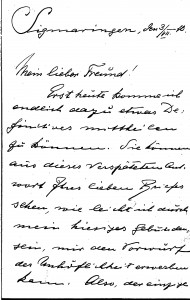 Sigmaringen, den 3/
Mein lieber Freund!
Erst heute komme ich
endlich dazu etwas De-
finitives mittheilen
zu können. Sie können
aus dieser verspäteten Ant-
wort Ihres lieben Briefs
sehen, wie leicht ich durch
mein hiesiges gebunden
sein, mir den Vorwurf
der Unhöflichkeit erwerben
kann. Also, der